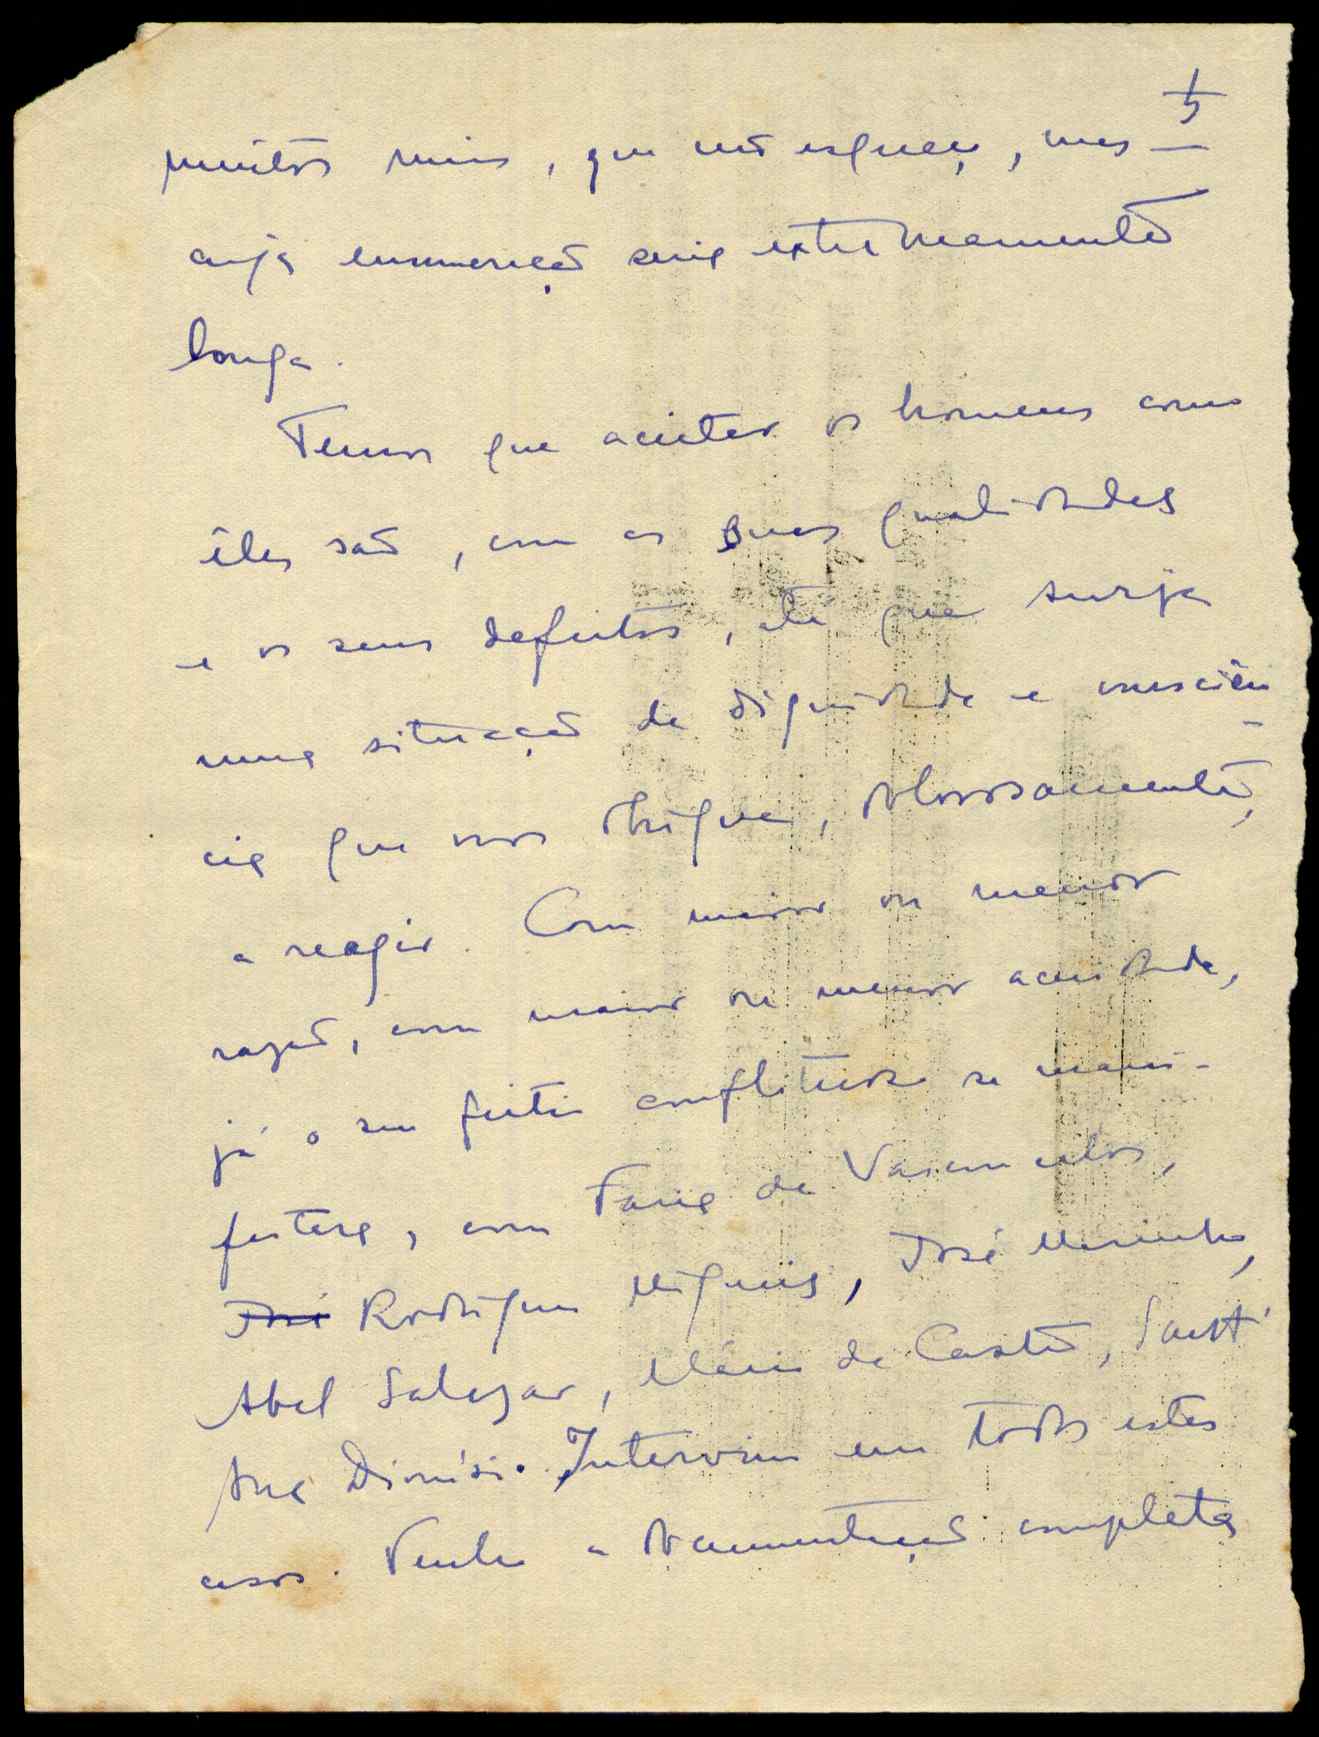 5
muitos mais, que não esqueço, mas
cuja enumeração seria extremamente
longa.
Temos que aceitar os homens como
êles são, com as suas qualidades
e os seus defeitos, até que surja
uma situação de dignidade e consciên
cia que nos obrigue, dolorosamente,
a reagir. Com maior ou menor
razão, com maior ou menor acuidade,
já o seu feitio conflituoso se mani-
festara, com Faria de Vasconcelos,
José Rodrigues Miguéis, José Marinho,
Abel Salazar, Mário de Castro, Sant'
Ana Dionísio. Intervim em todos estes
casos. Tenho a documentação completa